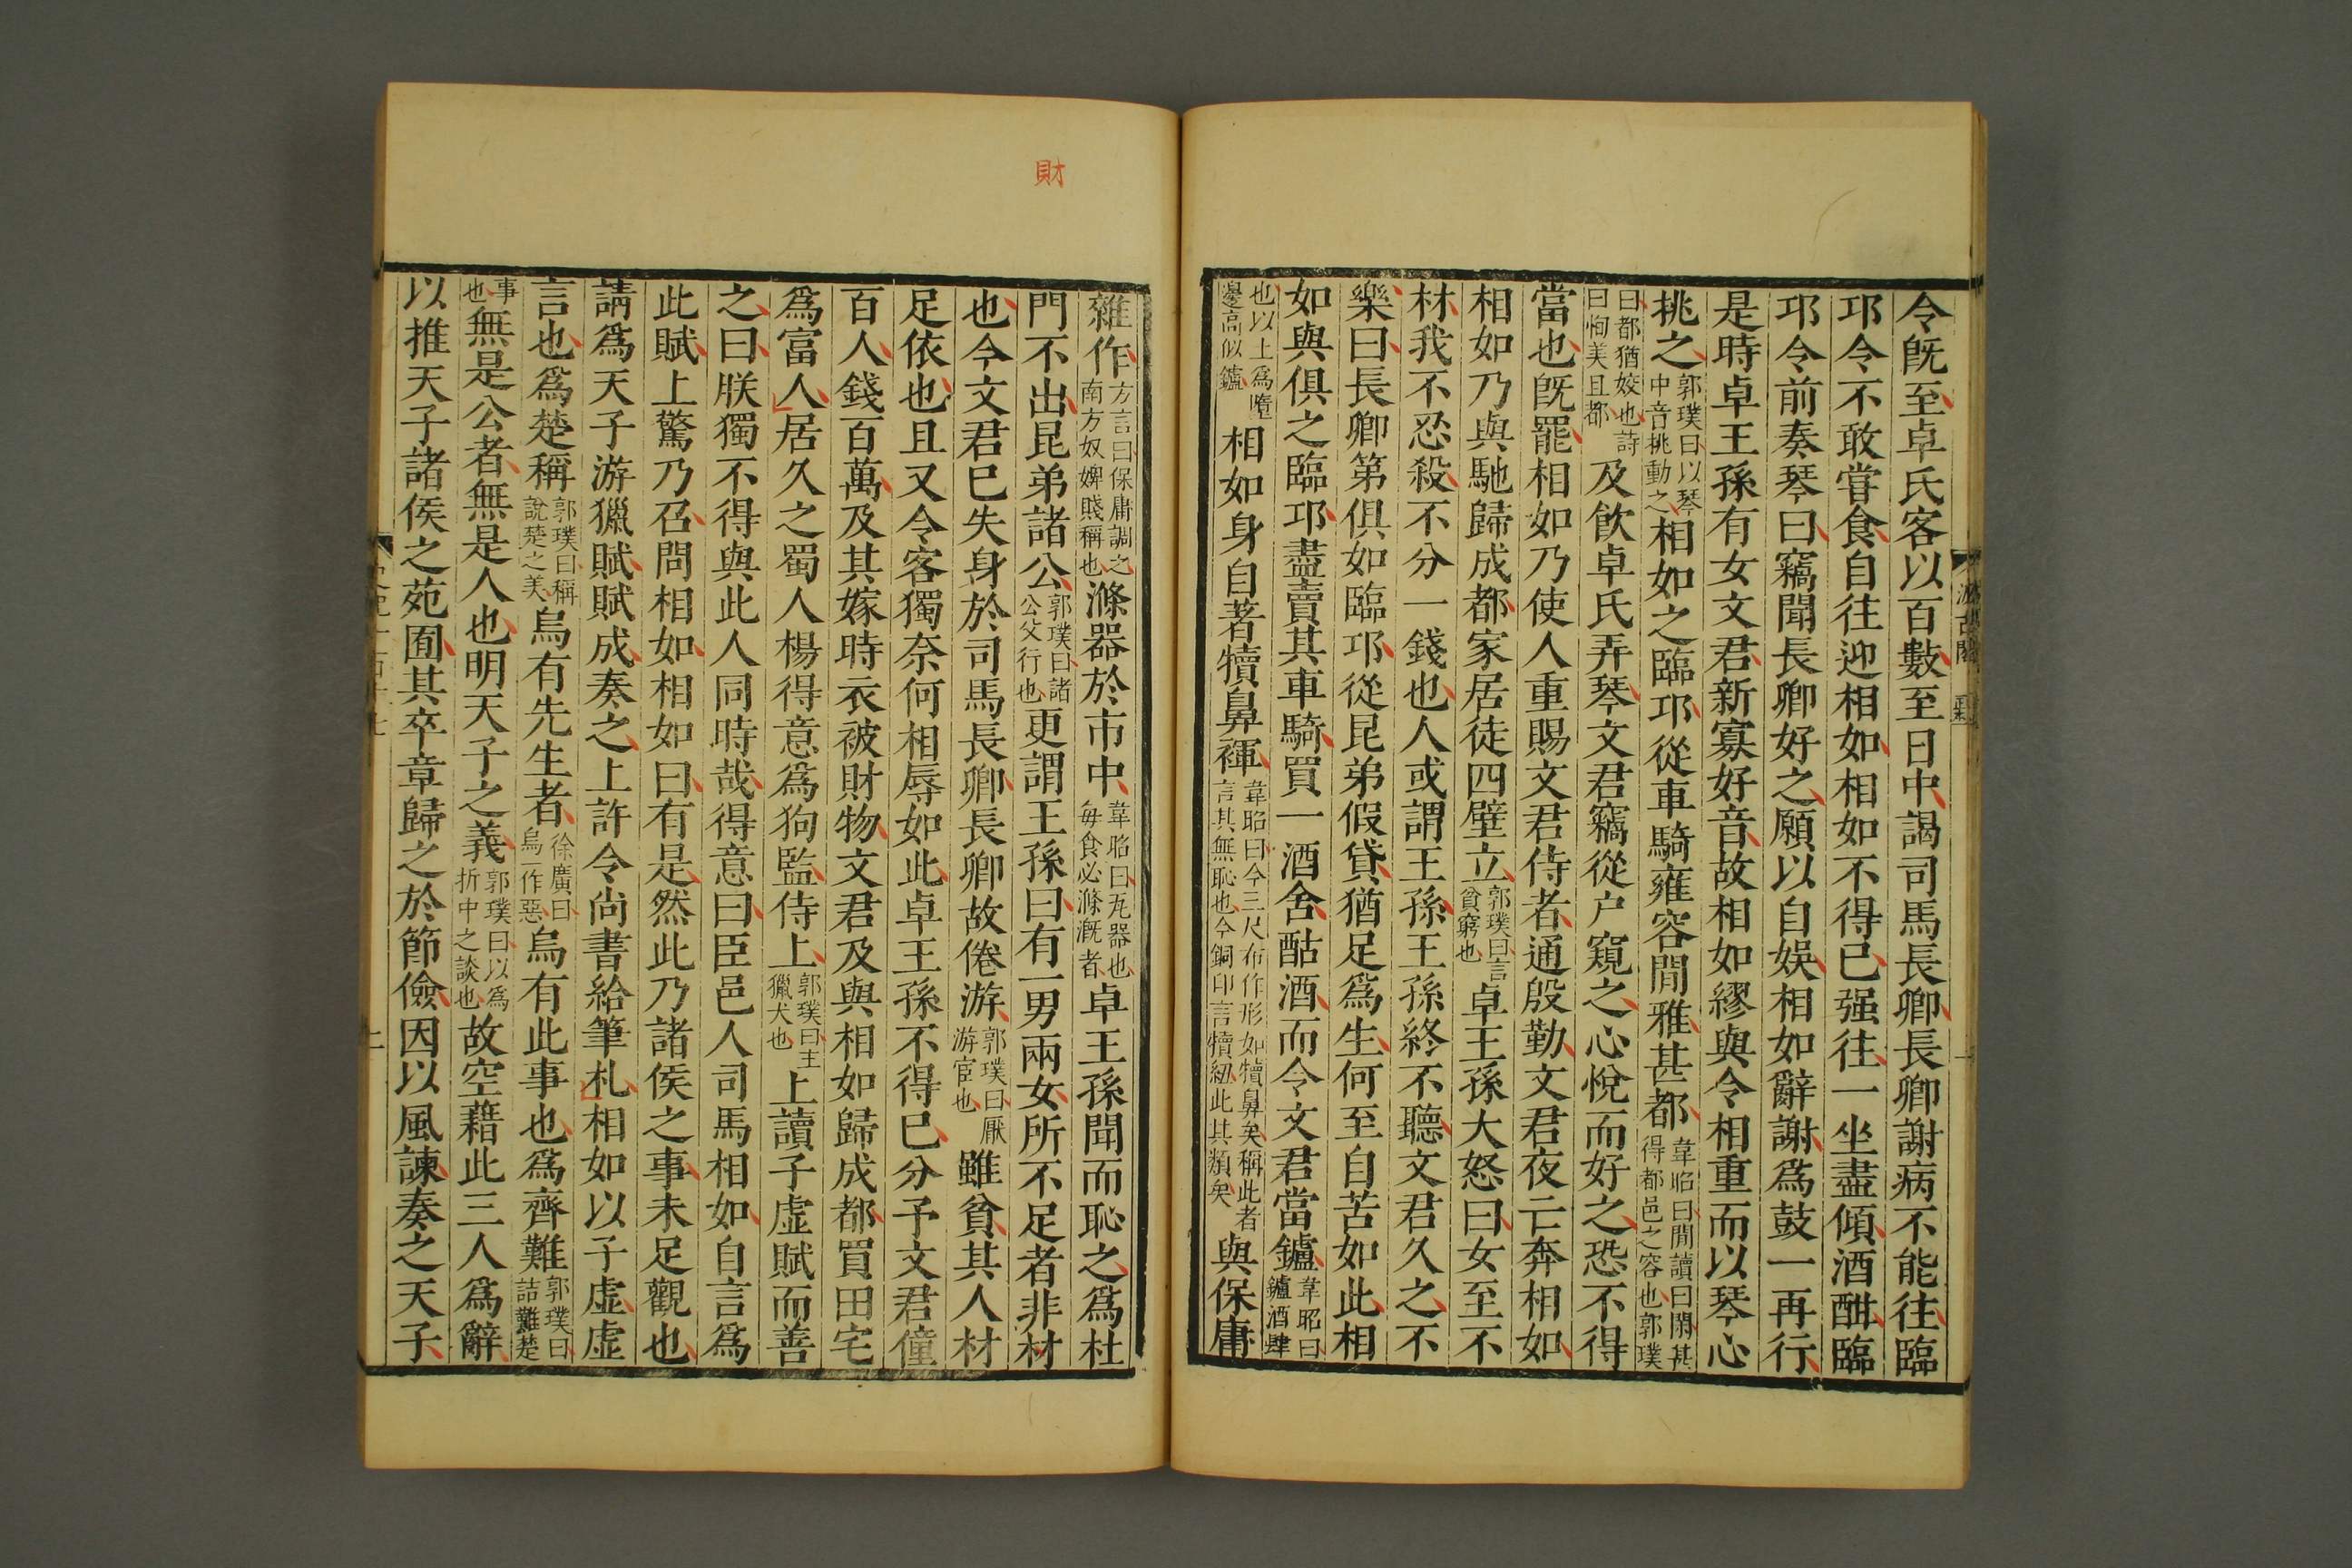 令旣至卓氏客以百數至日中謁司馬長卿長卿謝病不能往臨
邛令不敢嘗食自往迎相如相如不得已强往一坐盡傾酒酣臨
邛令前奏琴曰竊聞長卿好之願以自娛相如辭謝爲鼓一再行
是時卓王孫有女文君新寡好音故相如繆與令相重而以琴心
挑之郭璞曰以琴中音挑動之相如之臨邛從車騎雍容閒雅甚都韋昭曰閒讀曰閑甚得都邑之容也郭璞
曰都猶姣也詩曰恂美且都及飮卓氏弄琴文君竊從户窺之心悅而好之恐不得
當也旣罷相如乃使人重賜文君侍者通殷勤文君夜亡奔相如
相如乃與馳歸成都家居徒四壁立郭璞曰言貧窮也卓王孫大怒曰女至不
材我不忍殺不分一錢也人或謂王孫王孫終不聽文君久之不
樂曰長卿第俱如臨邛從昆弟假貸猶足爲生何至自苦如此相
如與俱之臨邛盡賣其車騎買一酒舍酤酒而令文君當鑪韋昭曰鑪酒肆
也以上爲墮邊高似鑪相如身自著犢鼻褌韋昭曰今三尺布作形如犢鼻矣稱此者言其無恥也今銅印言犢紐此其類矣與保庸
雜作方言曰保庸謂之南方奴婢賤稱也滌器於市中韋昭曰瓦器也每食必滌溉者卓王孫聞而恥之爲杜
門不出昆弟諸公郭璞曰諸公父行也更謂王孫曰有一男兩女所不足者非材
也今文君已失身於司馬長卿長卿故倦游郭璞曰厭游宦也雖貧其人材
足依也且又令客獨奈何相辱如此卓王孫不得已分予文君僮
百人錢百萬及其嫁時衣被財物文君及與相如歸成都買田宅
爲富人居久之蜀人楊得意爲狗監侍上郭璞曰主獵犬也上讀子虛賦而善
之曰朕獨不得與此人同時哉得意曰臣邑人司馬相如自言爲
此賦上驚乃召問相如相如曰有是然此乃諸侯之事未足觀也
請爲天子游獵賦賦成奏之上許令尚書給筆札相如以子虛虛
言也爲楚稱郭璞曰稱說楚之美烏有先生者徐廣曰烏一作惡烏有此事也爲齊難郭璞曰詰難楚
事也無是公者無是人也明天子之義郭璞曰以爲折中之談也故空藉此三人爲辭
以推天子諸侯之苑囿其卒章歸之於節儉因以風諫奏之天子
財
汲古閣